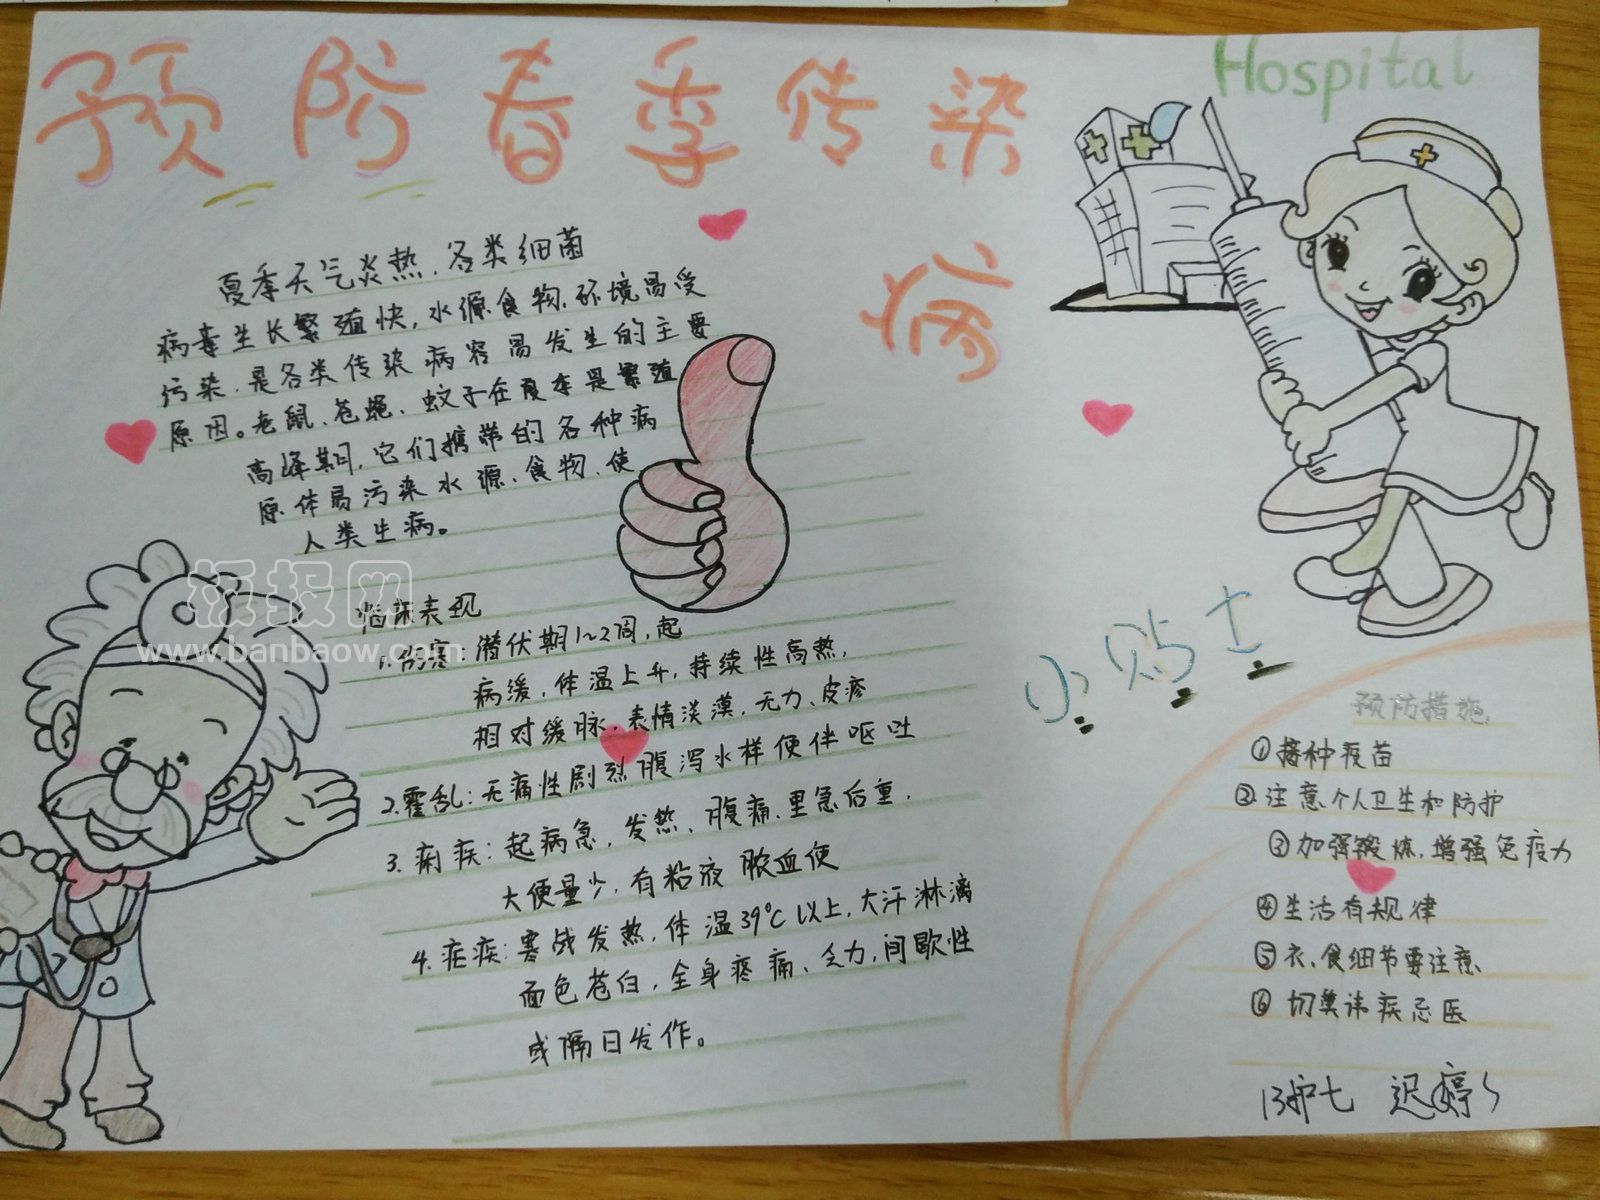 预防春季传染
病
Hospital
夏季天气炎热,各类细菌
病毒生长繁殖快,水源食物、环境易受
污染,是各类传染病容易发生的主要
原因。老鼠、苍蝇、蚊子在夏季是繁殖
高峰期,它们携带的各种病
原体易污染水源、食物、使
人类生病。
临床表现
1.伤寒:潜伏期1~2周,起
病缓,体温上升,持续性高热,
相对缓脉,表情淡漠,无力、皮疹
2.霍乱:无痛性剧烈腹泻水样便伴呕吐
3.痢疾:起病急,发热、腹痛、里急后重,
大便量少,有粘液脓血便
4.疟疾:寒战发热,体温39℃以上,大汗淋漓
面色苍白,全身疼痛、乏力,间歇性
或隔日发作。
小贴士
预防措施
①接种疫苗
②注意个人卫生和防护
③加强锻炼,增强免疫力
④生活有规律
⑤衣、食细节要注意
⑥切莫讳疾忌医
13护七 迟婷
板报网
www.banbaow.com